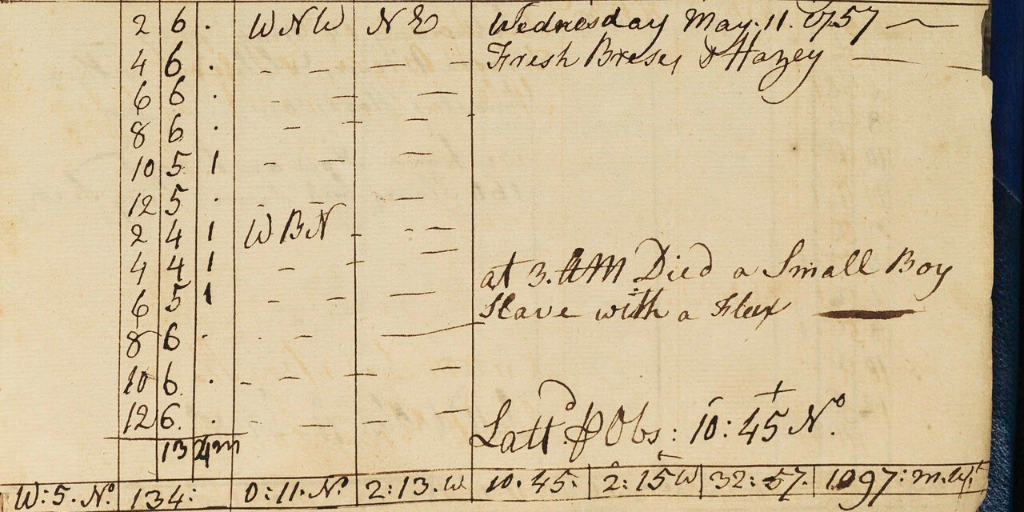 2 6 . WNW NE Wednesday May. 11. 1757
4 6 . - - - - - Fresh Breses & Hazey
6 6 . - - - -
8 6 . - -
10 5 1 - - -
12 5 . - - -
2 4 1 WBN - - -
4 4 1 - - at 3. AM Died a Small Boy
6 5 1 - - - Slave with a Flux
8 6 . -
10 6 . - - - -
12 6 . - - - - Lattd ꝑ Obs: 10:45 No.
13 4m
W:5.No. 134: 0:11.No. 2:13.W 10.45: 2:15W 32:57. 1097:m.Wt.